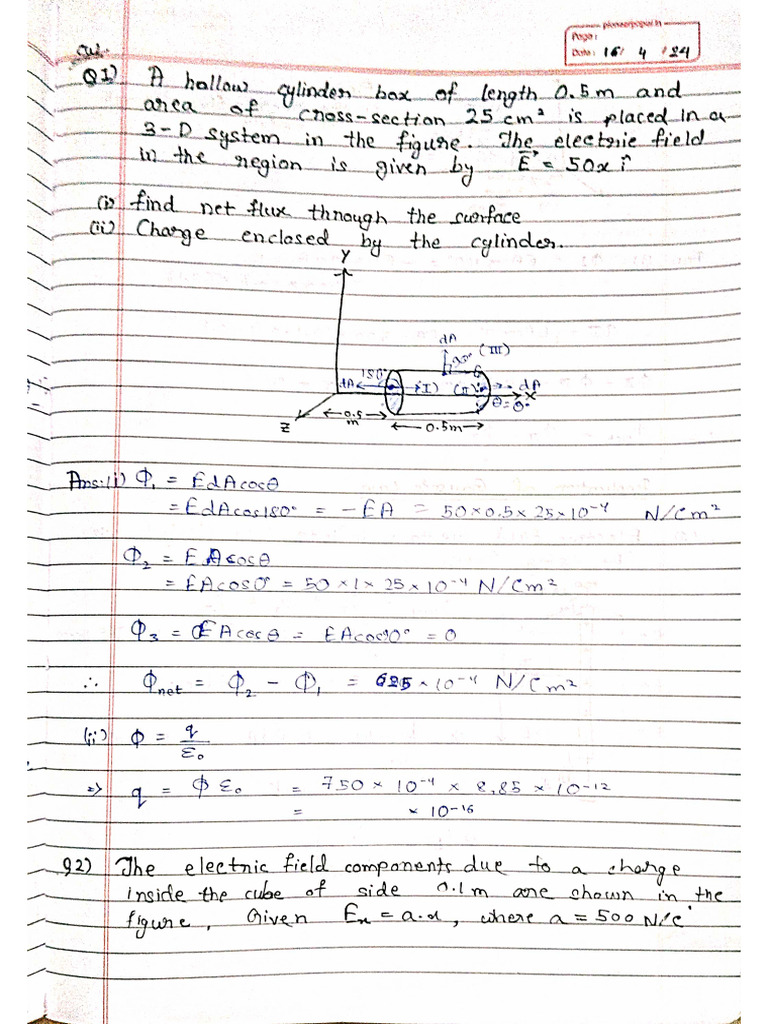 pioneerpaper.in
Page :
Date : 16 4 24
CW.
Q1) A hollow cylinder box of length 0.5m and
area of cross-section 25 cm² is placed in a
3-D system in the figure. The electric field
in the region is given by E⃗ = 50x î
(i) find net flux through the surface
(ii) Charge enclosed by the cylinder.
Y
dA
90° (III)
180°
dA (I) (II) dA
X
θ=0°
Z
0.5 m
0.5m
Ans:(i) Φ₁ = EdAcosθ
= EdAcos180° = -EA = 50×0.5×25×10⁻⁴ N/Cm²
Φ₂ = EAcosθ
= EAcos0° = 50×1×25×10⁻⁴ N/Cm²
Φ₃ = EAcosθ = EAcos90° = 0
∴ Φnet = Φ₂ - Φ₁ = 625×10⁻⁴ N/Cm²
(ii) Φ = q/ε₀
=> q = Φε₀ = 750 × 10⁻⁴ × 8.85 × 10⁻¹²
= × 10⁻¹⁶
Q2) The electric field components due to a charge
inside the cube of side 0.1m are shown in the
figure, Given Eₓ = a.x, where a = 500 N/C